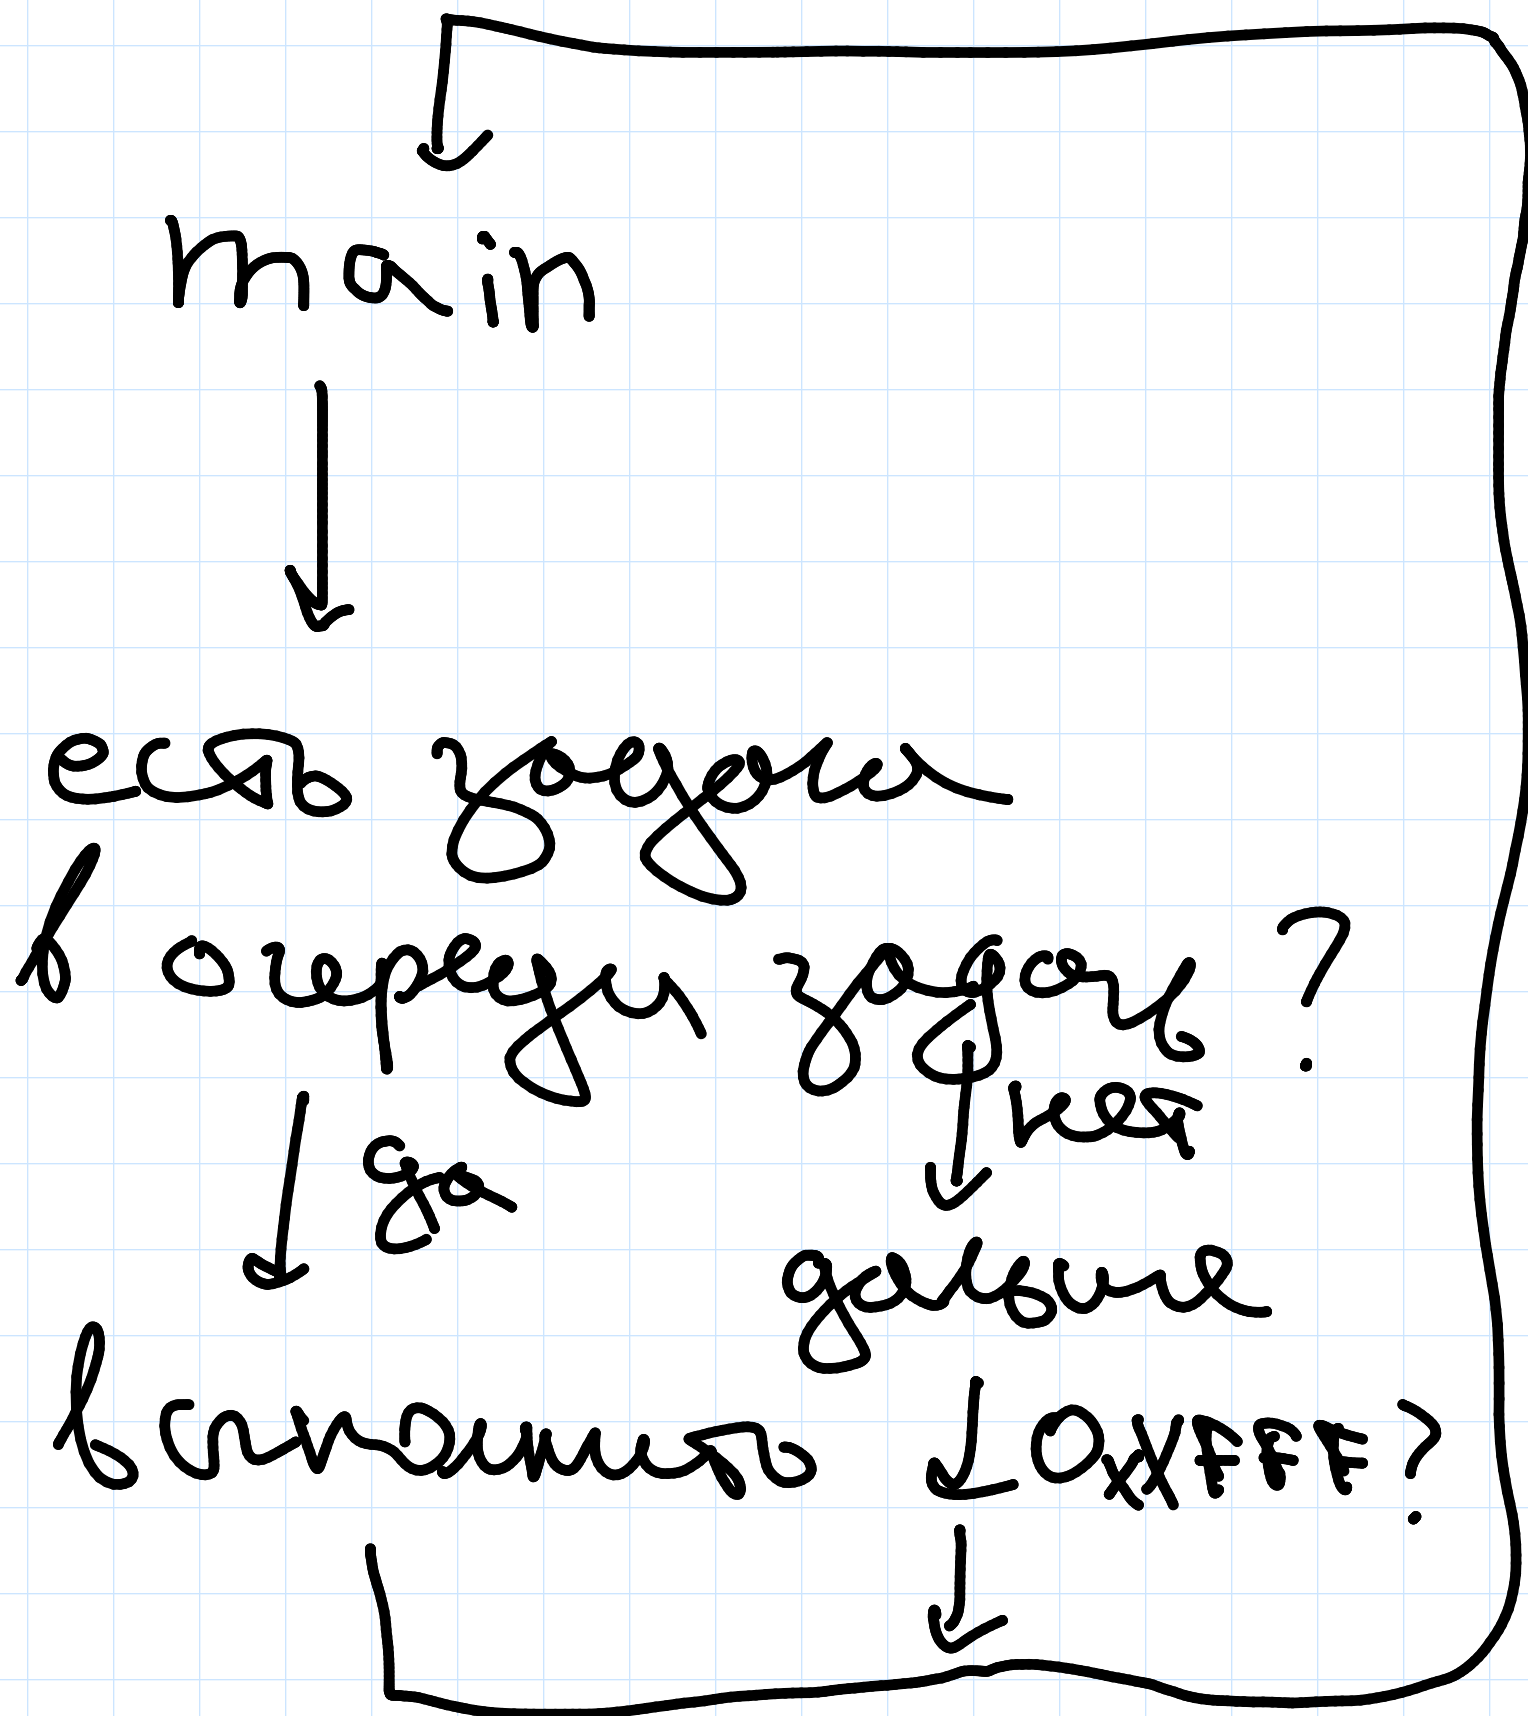 main
есть задача
в очереди задач ?
да
нет
дальше
выполнить
0xXFFF?